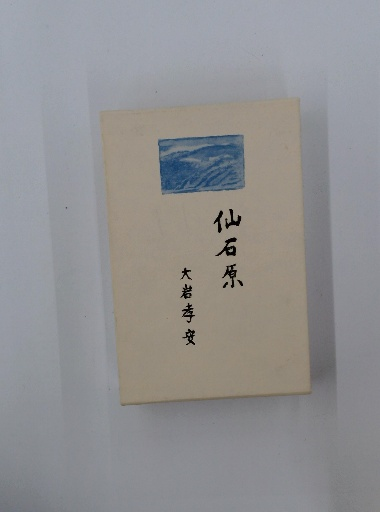 仙石原
大岩孝安